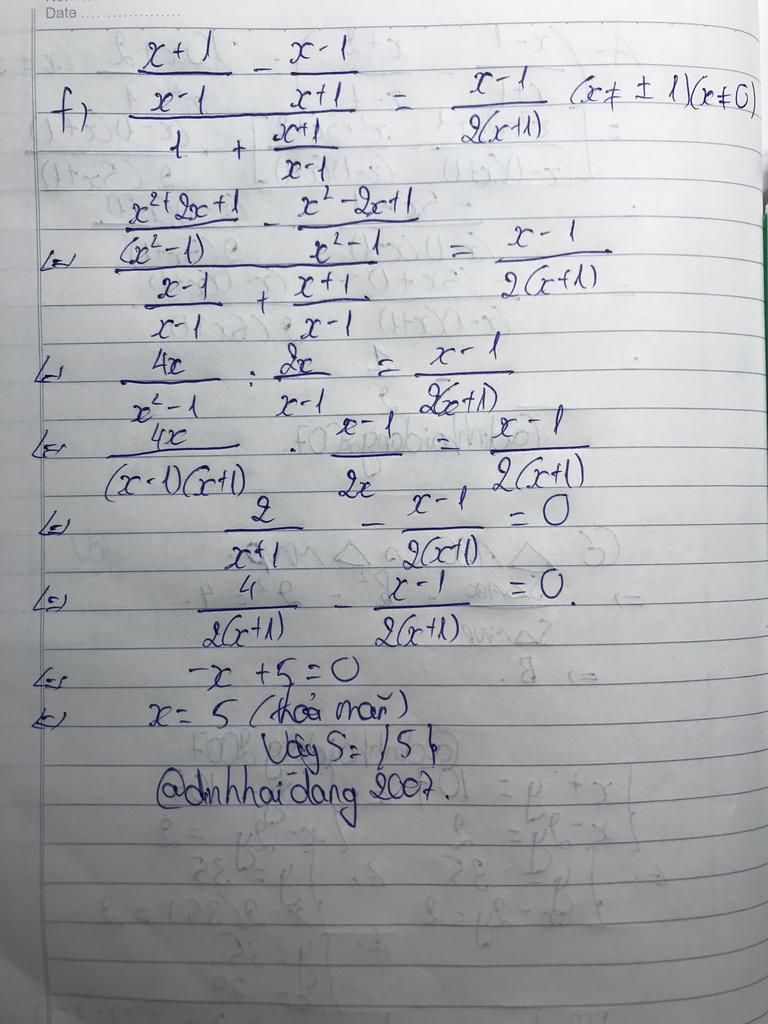 Date
f) \frac{\frac{x+1}{x-1} - \frac{x-1}{x+1}}{1 + \frac{x+1}{x-1}} = \frac{x-1}{2(x+1)} (x ≠ ± 1)(x ≠ 0)
<=> \frac{\frac{x²+2x+1}{(x²-1)} - \frac{x²-2x+1}{x²-1}}{\frac{x-1}{x-1} + \frac{x+1}{x-1}} = \frac{x-1}{2(x+1)}
<=> \frac{4x}{x²-1} : \frac{2x}{x-1} = \frac{x-1}{2(x+1)}
<=> \frac{4x}{(x-1)(x+1)} . \frac{x-1}{2x} = \frac{x-1}{2(x+1)}
<=> \frac{2}{x+1} - \frac{x-1}{2(x+1)} = 0
<=> \frac{4}{2(x+1)} - \frac{x-1}{2(x+1)} = 0.
<=> -x + 5 = 0
<=> x = 5 (thoả mãn)
Vậy S = {5}
@dinhhaidang 2007.